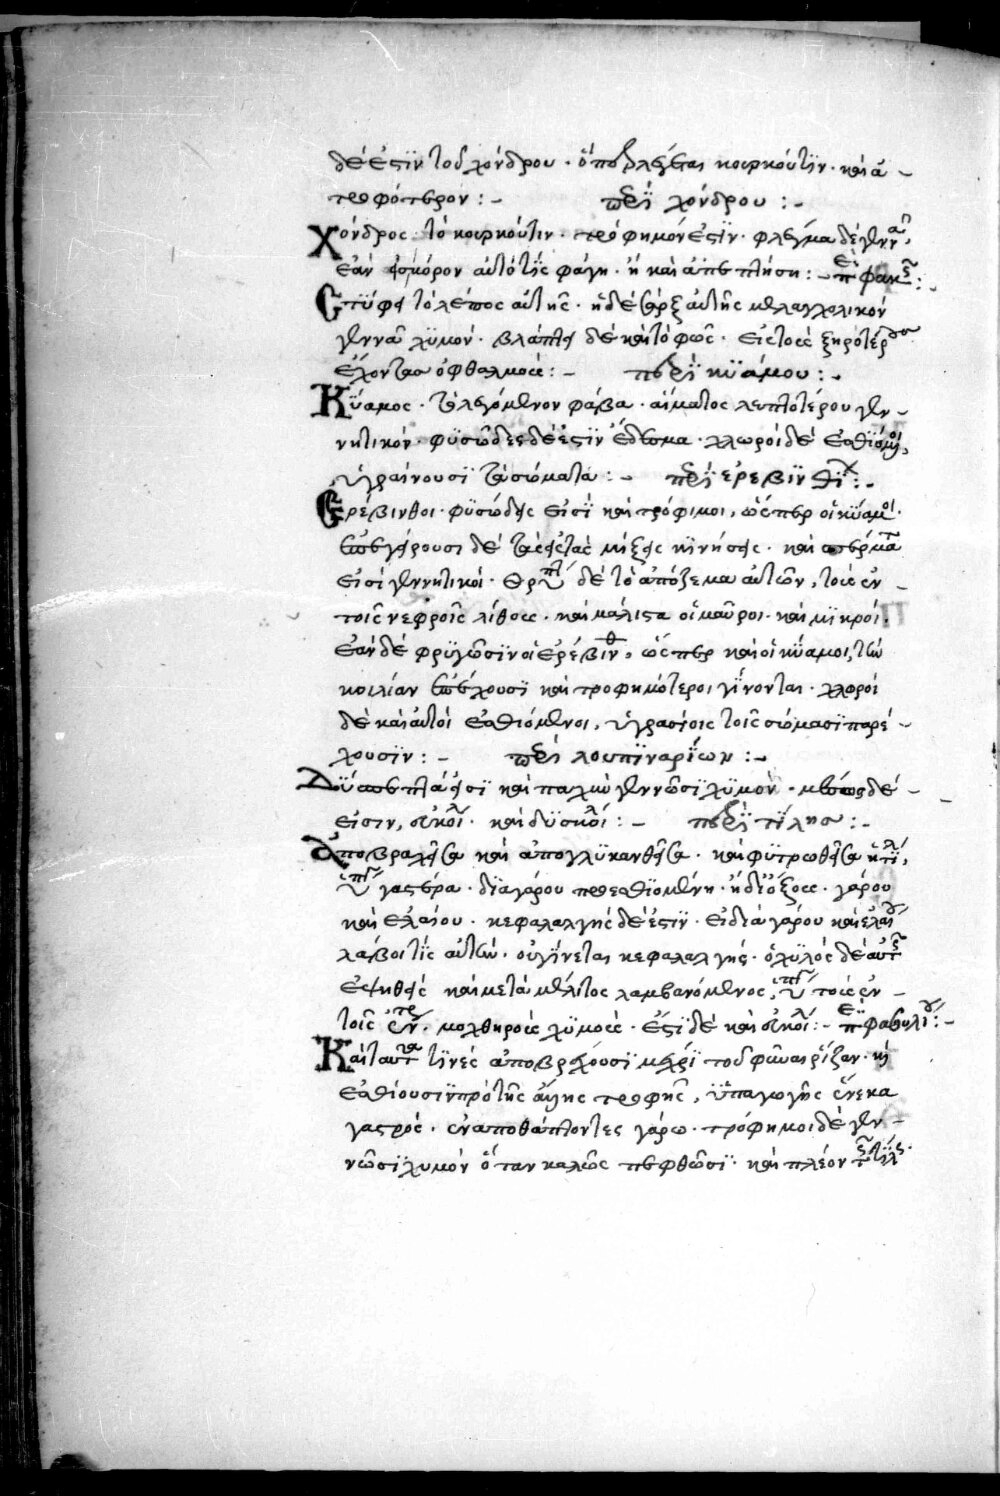 δέ ἐστϊν τοῦ χόνδρου · ὅπερ λέγεται κουρκούτϊν · καὶ ἀ
τροφότερον : – περϊ χόνδρου : –
Χόνδρος · τὸ κουρκούτιν · τρόφημόν ἐστϊν · φλέγμα δὲ γεννᾶ,
ἐὰν αὐτό τϊς φάγη · ἢ καὶ : – π φακ :
Στϋφει τὸ λέπος αὐτῆς · ἡ δὲ σὰρξ αὐτῆς μελαγχολικὸν
γεννᾶ χϋμόν · βλάπτει δὲ καὶ τὸ φῶς · εἰς τοὺς ξηροτέρους
ἔχοντας ὀφθαλμούς : – περϊ κϋάμου : –
Κϋαμος · τὸ λεγόμενον φάβα · αἵματος λεπτοτέρου γεν
νητικόν · φϋσῶδες δέ ἐστϊν ἔδεσμα · χλωροὶ δὲ ἐσθϊόμενοι,
ὑγραίνουσϊ τὰ σώματα : – περϊ ἐρεβϊνθϊ : –
Ἐρέβινθοι · φϋσώδεις εἰσϊ καὶ τρόφιμοι, ὥσπερ οἱ κϋαμοι ·
ἐπεγείρουσι δὲ τὰς εἰς τὰς μίξεις κϊνήσεις · καὶ σπέρματα
εἰσὶ γεννητικοί · θρύπτει δὲ τὸ ἀπόζεμα αὐτῶν, τοὺς ἐν
τοῖς νεφροῖς λίθους · καὶ μάλιστα οἱ μαῦροι · καὶ μϊκροί ·
ἐὰν δὲ φρϋγῶσϊν οἱ ἐρέβϊνθ, ὥσπερ καὶ οἱ κϋαμοι, τὴν
κοιλίαν ἐπέχουσϊ καὶ τροφημότεροι γϊνονται · χλωροὶ
δὲ καὶ αὐτοὶ ἐσθιόμενοι, ὑγρασίοις τοῖς σώμασϊ παρέ
χουσϊν : – περὶ λουπϊναρϊων : –
Δϋσπεπτα εἰσϊ καὶ παχὺν γεννῶσϊ χϋμὸν · μέσως δέ
εἰσιν, εὐκοίλ · καὶ δϋσκοίλ : – περϊ τϊλης : –
Ἀποβραχεῖσα καὶ ἀπογλϋκανθεῖσα · καὶ φϋτρωθεῖσα ἡ τϊλ,
ὑπ γαστέρα · δϊὰ γάρου προεσθϊομένη · ἢ δι ὄξους · γάρου
καὶ ἐλαίου · κεφαλαλγὴς δέ ἐστϊν · εἰ διὰ γάρου καὶ ἐλαίου
λάβοι τϊς αὐτὴν · οὐ γϊνεται κεφαλαλγής · ὁ χϋλὸς δὲ αὐτ
ἑψηθεὶς καὶ μετὰ μέλιτος λαμβανόμενος, ὑπ τοὺς ἐν
τοῖς ἐντ · μοχθηροὺς χϋμούς · ἔστϊ δὲ καὶ εὐκοίλ : – π φασουλί : –
Καὶ ταυτ τϊνὲς ἀποβρέχουσϊ μέχρϊ τοῦ φῦναι ῥϊζαν · καὶ
ἐσθίουσιν πρὸ τῆς ἄλλης τροφῆς, ὑπαγωγῆς ἕνεκα
γαστρός · ἐναποβάπτοντες γάρω · τρόφημοι δὲ γεν
νῶσϊ χυμὸν ὅταν καλῶς πεφθῶσϊ · καὶ πλέον τ τϊλς